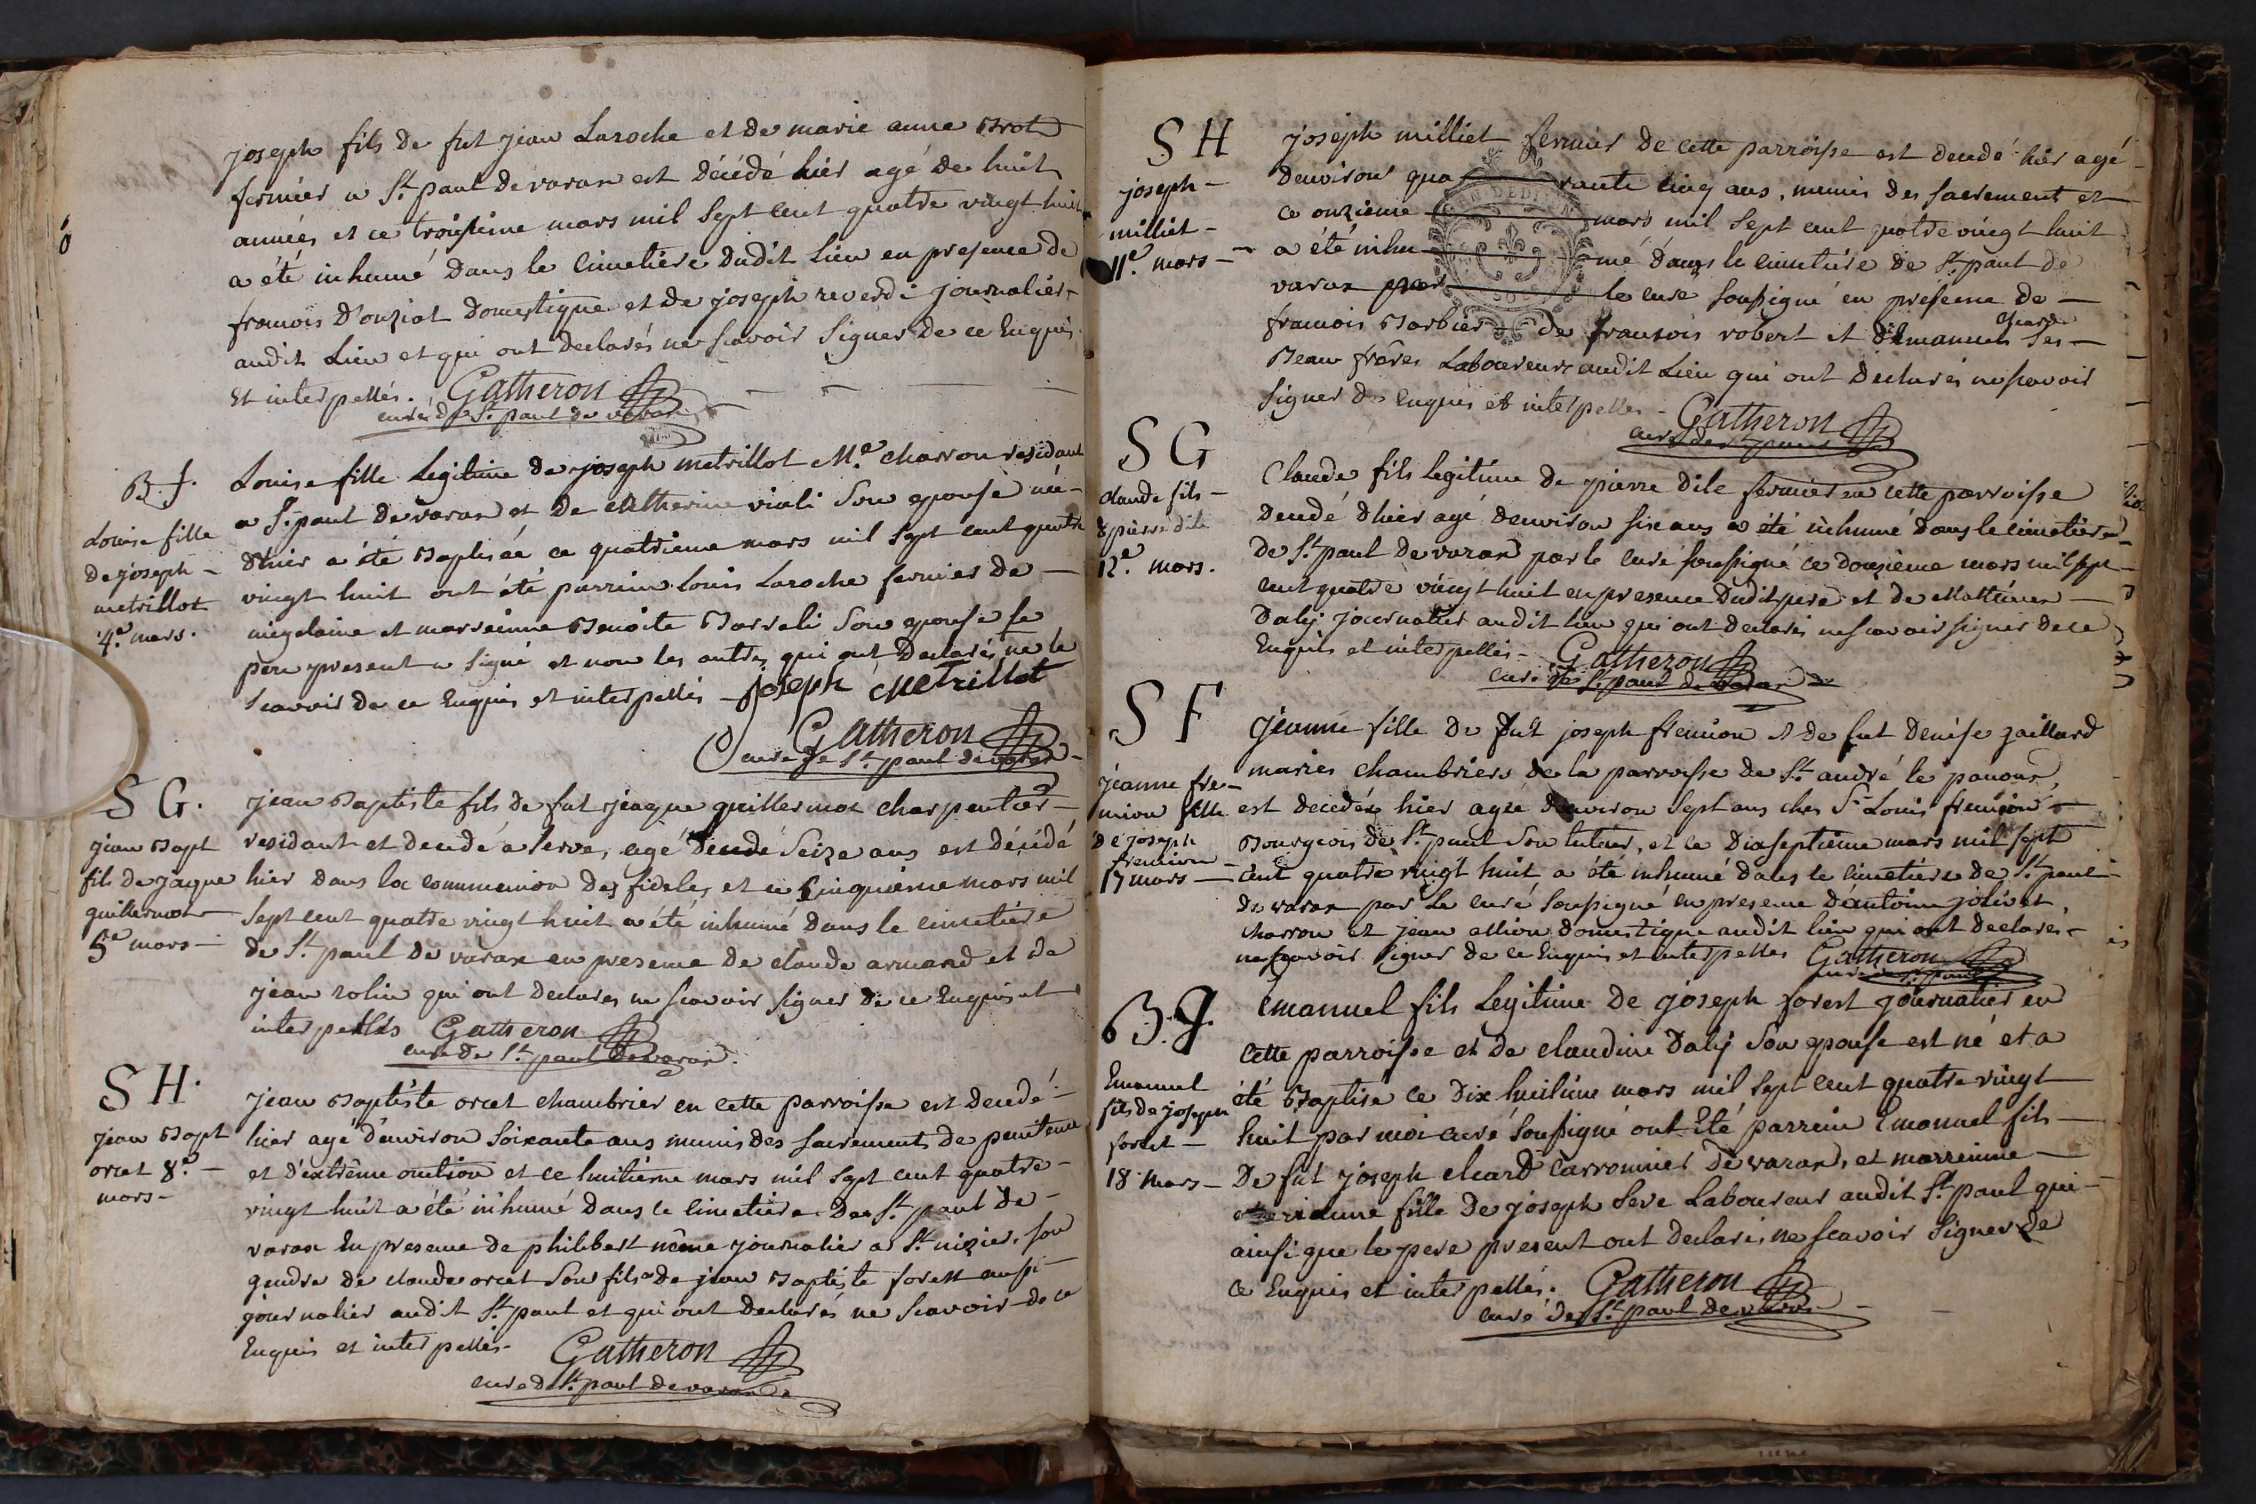 joseph fils de fut jean Laroche et de marie anne Brot
fermier a St. paul de varax est décédé hier agé de huit
années et ce troisieme mars mil sept cent quatre vingt huit
a été inhumé dans le cimetiere dudit lieu en presence de
francois d'ouziat domestique et de joseph reverdi journalier
audit Lieu et qui ont declarés ne scavoir signer de ce Enquis
et interpellés. Gatheron
curé de St. paul de varax
B. f.
Louise fille
de joseph
metrillot
4e. mars.
Louise fille Legitime de joseph metrillot Me. charron residant
a St. paul de varax et de Catherine viali son epouse née
d'hier a été Baptisée ce quatrieme mars mil sept cent quatre
vingt huit ont été parrein Louis Laroche fermier de
et marreinne Benoite Barrali son epouse le
pere present a signé et non les autres qui ont declarés ne le
scavoir de ce Enquis et interpellés - joseph Metrillot
Gatheron
curé de St. paul de varax
S G.
jean Bapt
fils de jaque
guillermot
5e mars
jean Baptiste fils de fut jeaque guillermot charpentier
residant et decedé a Serve, agé de seize ans est décédé
hier dans la communion des fideles et ce cinquieme mars mil
sept cent quatre vingt huit a été inhumé dans le cimetiere
de St. paul de varax en presence de claude armand et de
jean rolin qui ont declarés ne scavoir signer de ce Enquis et
interpellés Gatheron
curé de St. paul de varax.
S H.
jean Bapt
orcet 8e.
mars
jean Baptiste orcet chambrier en cette parroisse est decedé
hier agé d'environ soixante ans munis des sacrements de penitence
et d'extrême onction et ce huitieme mars mil sept cent quatre
vingt huit a été inhumé dans le cimetiere de St. paul de
varax En presence de philibert même journalier a St. nizier, son
gendre de claude orcet son fils de jean Baptiste forest aussi
journalier audit St. paul et qui ont declarés ne scavoir de ce
Enquis et interpellés. Gatheron
curé de St. paul de varax
S H
joseph
milliet
11e. mars
joseph milliet fermier de cette parroisse est decedé hier agé
denviron qua rante cinq ans, munis des sacrement et
ce onzieme mars mil sept cent quatre vingt huit
a été inhu mé dans le cimetiere de St. paul de
varax par le curé soussigné en presence de
francois Barbier de francois robert et d'Emanuel Chard ses
Beau frères Laboureurs audit Lieu qui ont declarés ne scavoir
signer de Enquis et interpellés - Gatheron
curé de St. paul
S G
claude fils
de pierre dile
12e. mars.
Claude fils legitime de pierre dile fermier en cette parroisse
decedé d'hier agé denviron six ans a été inhumé dans le cimetiere
de St. paul de varax par le curé soussigné ce douzième mars mil sept
cent quatre vingt huit en presence dudit pere et de
Daly journalier audit lieu qui ont declarés ne scavoir signer de ce
Enquis et interpellés - Gatheron
curé de St. paul de varax
S F
jeanne fre-
mion fille
de joseph
fremion
17 mars
jeanne fille de fut joseph fremion et de fut denise gaillard
mariés chambriers de la parroisse de St. andré le panoux
est decedée hier agée d'environ sept ans chez Sr. Louis fremion
Bourgeois de St. paul son tuteur, et ce dix septieme mars mil sept
cent quatre vingt huit a été inhumé dans le cimetiere de St. paul
de varax par le curé soussigné en presence d'antoine jolivet
charron et jean domestique audit lieu qui ont declarés
ne scavoir signer de ce Enquis et interpellés Gatheron
curé de St. paul
B. g.
Emanuel
fils de joseph
forest
18 mars
Emanuel fils Legitime de joseph forest journalier en
cette parroisse et de claudine Daly son epouse est né et a
été Baptisé ce dix huitième mars mil sept cent quatre vingt
huit par moi curé soussigné ont été parrein Emanuel fils
de fut joseph chard carronnier de varax, et marreinne
fille de joseph seve Laboureur audit St. paul qui
ainsi que le pere present ont declarés ne scavoir signer de
ce Enquis et interpellés. Gatheron
curé de St. paul de varax